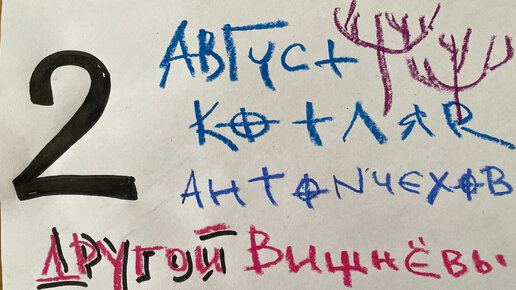 2
АВГУСТ
КОТЛЯR
АНТОN ЧЕХОВ
ДРУГОЙ ВИШНЁВЫ